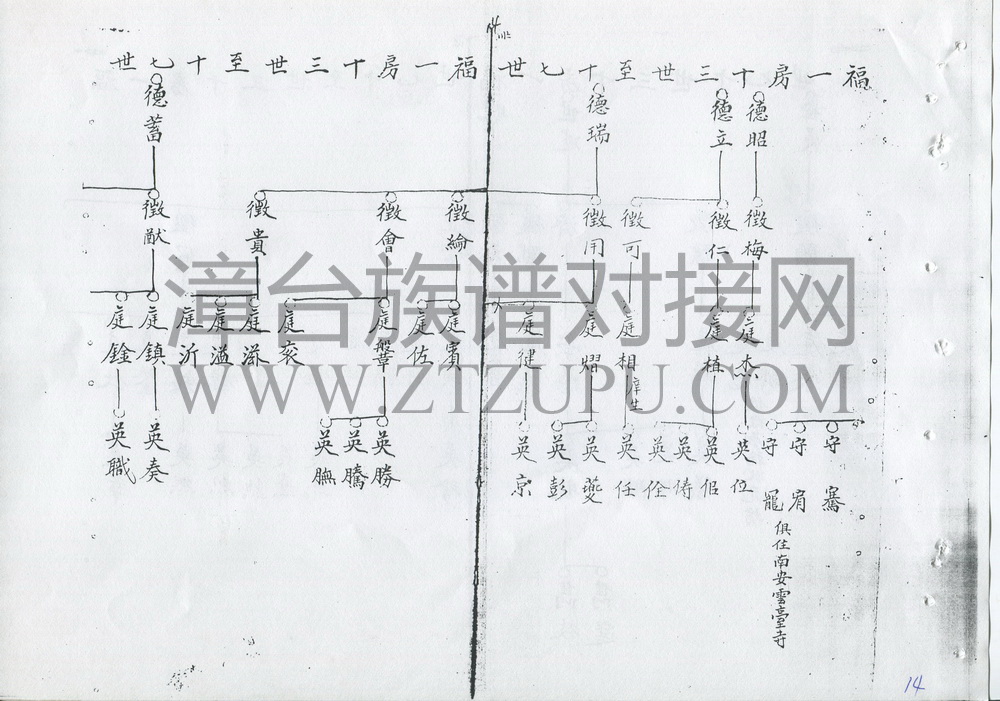 福一房十三世至十七世
德昭
德立
德瑞
徵梅
徵仁
徵可
徵用
庭杰
庭植
庭相
庠生
庭熠
庭健
守騫
守宥
守罷
俱住南安雲臺寺
英位
英佀
英侍
英佺
英任
英夔
英彭
英京
福一房十三世至十七世
德蓄
徵綸
徵會
徵貴
徵猷
庭賓
庭佐
庭鞶
庭袞
庭溢
庭沂
庭鎮
庭銓
英勝
英騰
英奏
英職
漳台族谱对接网
WWW.ZTZUPU.COM
14